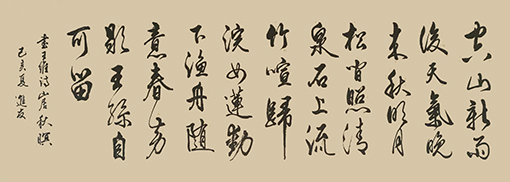 空山新雨
後天氣晚
来秋明月
松间照清
泉石上流
竹喧歸
浣女蓮動
下漁舟随
意春芳
歇王孫自
可留
書王維诗山居秋暝
己亥夏 進友